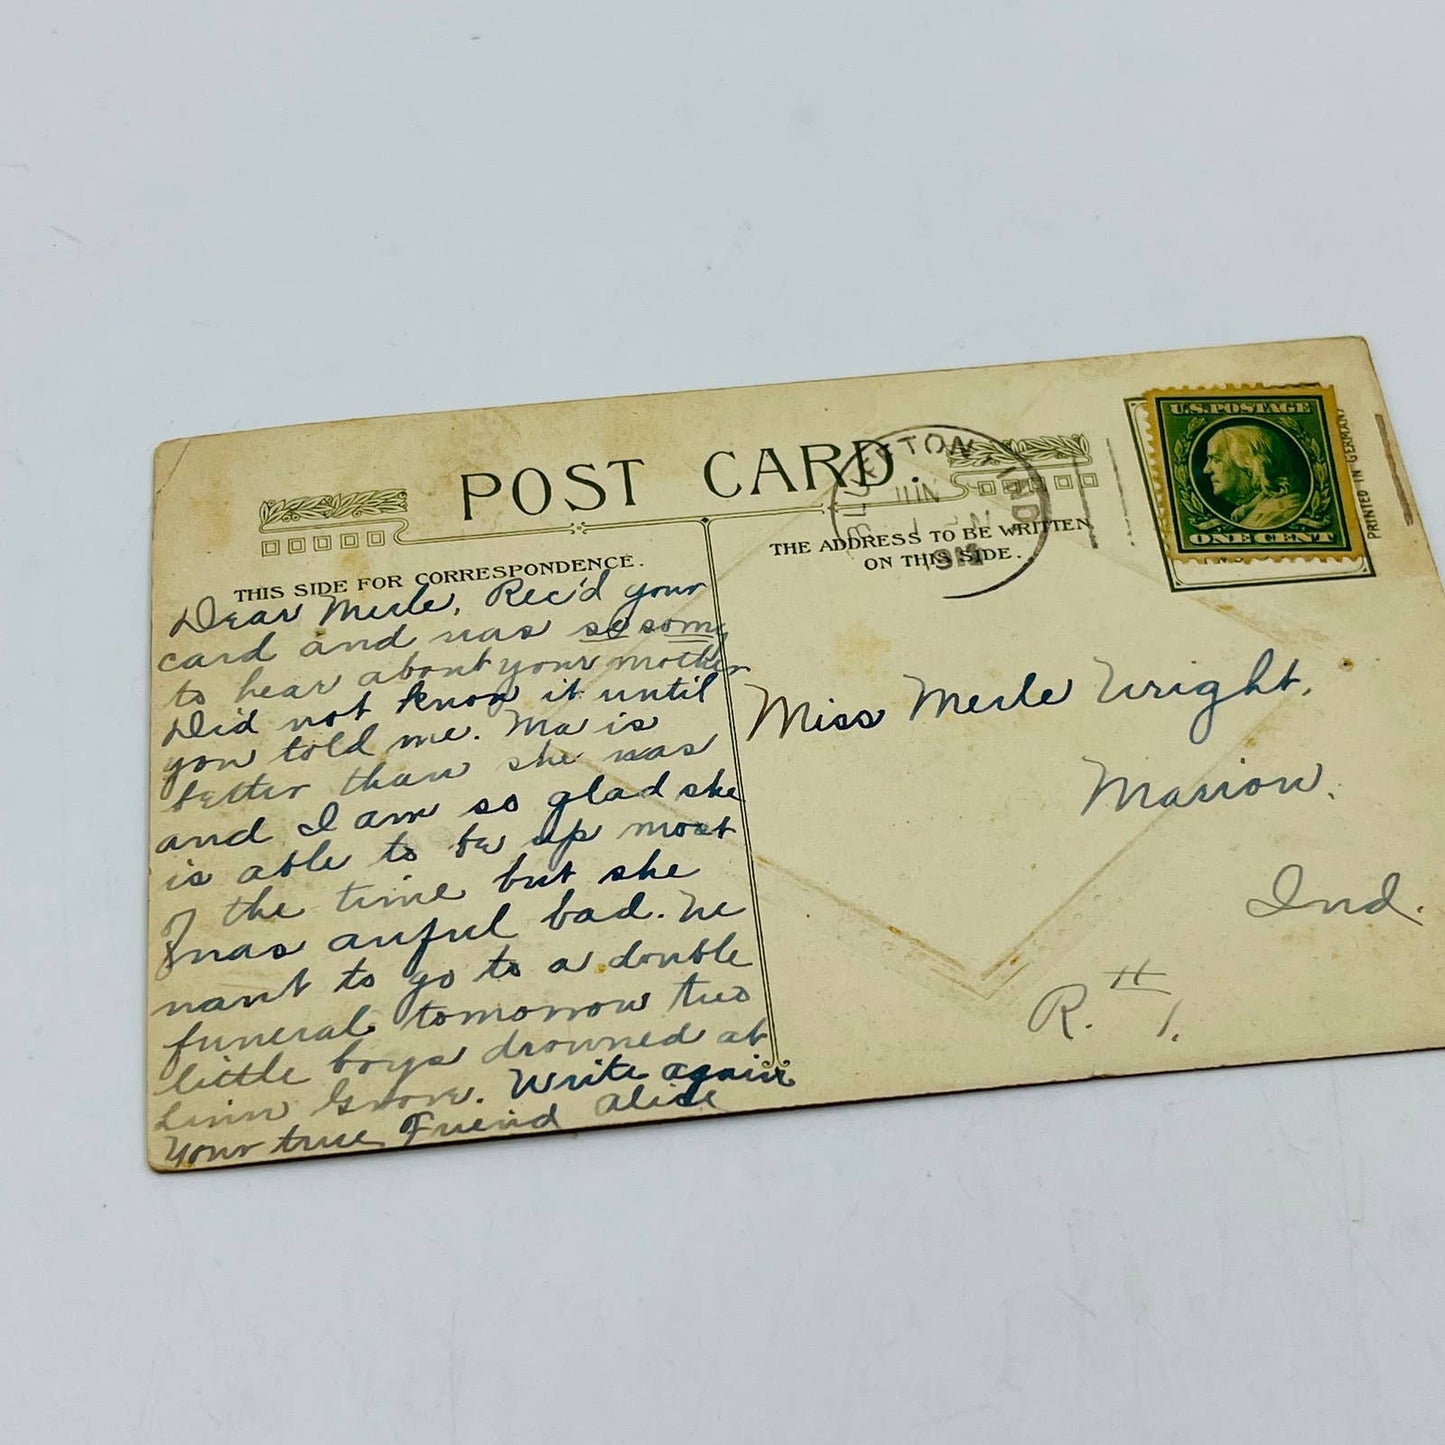 POST CARD.
THIS SIDE FOR CORRESPONDENCE.
THE ADDRESS TO BE WRITTEN
ON THIS SIDE.
BLUFFTON, IND
JUN
U.S. POSTAGE
ONE CENT
PRINTED IN GERMANY
Dear Merle, Rec'd your
card and was so sorry
to hear about your mother
Did not know it until
you told me. Ma is
better than she was
and I am so glad she
is able to be up most
of the time but she
was awful bad. We
want to go to a double
funeral tomorrow two
little boys drowned at
Linn Grove. Write again
Your true Friend Alice
Miss Merle Wright,
Marion,
Ind.
R. # 1.